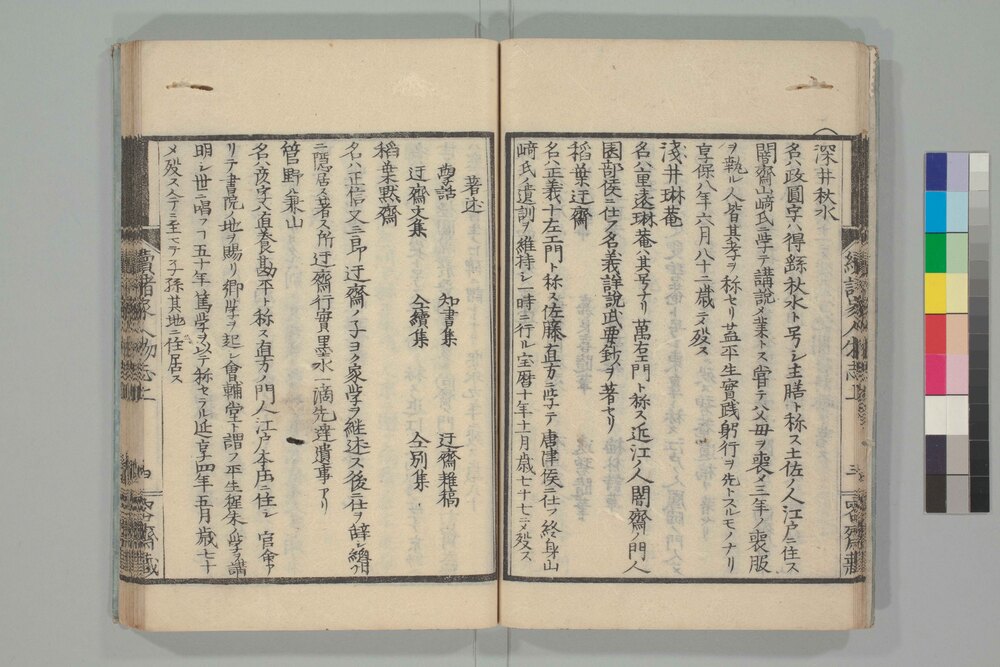 深井秋水
名ハ政圓字ハ得䌫秋水ト号シ主膳ト称ス土佐ノ人江戸ニ住ス
闇齋山﨑氏ニ学テ講説ヲ業トス甞テ父母ヲ喪メ三年ノ喪服
ヲ執ル人皆其孝ヲ称セリ葢平生實践躬行ヲ先トスルモノナリ
享保八年六月八十二歳ニテ殁ス
淺井琳菴
名ハ重遠琳菴ハ其号ナリ萬右エ門ト称ス近江ノ人闇齋ノ門人
園部侯ニ仕フ名義詳説武要鈔ヲ著セリ
稻葉迂齋
名ハ正義十左エ門ト称ス佐藤直方ニ学テ唐津侯ニ仕フ終身山
﨑氏ノ遺訓ヲ維持シ一時ニ行ル宝暦十年十一月歳七十七ニメ殁ス
著述
學話 知書集 迂齋雜稿
迂齋文集 仝續集 仝別集
稻葉默齋
名ハ正信又三郎迂齋ノ子ヨク家学ヲ継述ス後ニ仕ヲ辞シ
ニ隱居ス著ス所迂齋行實墨水一滴先達遺事アリ
管野兼山
名ハ彦字ハ直養勘平ト称ス直方ノ門人江戸本庄ニ住シ官命ア
リテ書院ノ地ヲ賜リ郷学ヲ起シ會輔堂ト謂フ平生程朱ノ学ヲ講
明シ世ニ唱フヿ五十年篤学ヲ以テ称セラル延享四年五月歳七十
メ殁ス今ニ至マテ子孫其地ニ住居ス
續諸家人物志上
四